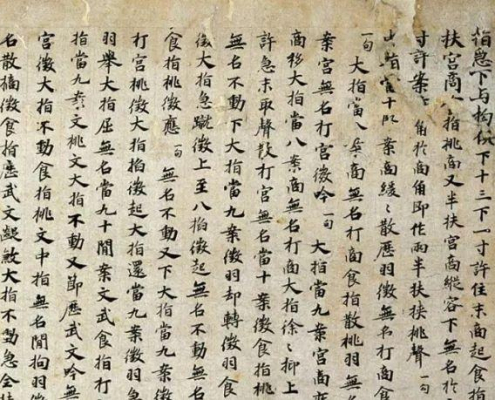 指急下与拘俱下十三下一寸許住末商起食指
扶宮商〻指挑商又半扶宮商縱容下無名於
寸許案角於商角即作兩半扶挾挑聲 一句
十案商緩〻散歷羽徵無名打商食
一句 大指當八案商無名打商食指散挑羽
案宮無名打宮徵吟 一句 大指當九案宮商疾
商移大指當八案商無名打商大指徐〻抑上
許急末取聲散打宮無名當十案徵食指挑
無名不動下大指當九案徵羽却轉徵羽食
徵大指急蹴徵上至八掐徵起無名不動無名
食指挑徵應 一句 無名不動又下大指當九案徵
打宮挑徵大指掐徵起大指還當九案徵羽急
羽舉大指屈無名當九十間案文武食指打
指當九案文挑文大指不動又節歷武文吟無
宮徵大指不動食指挑文中指無名間拘羽徵
名散摘徵食指歷武文大指不動急全扶